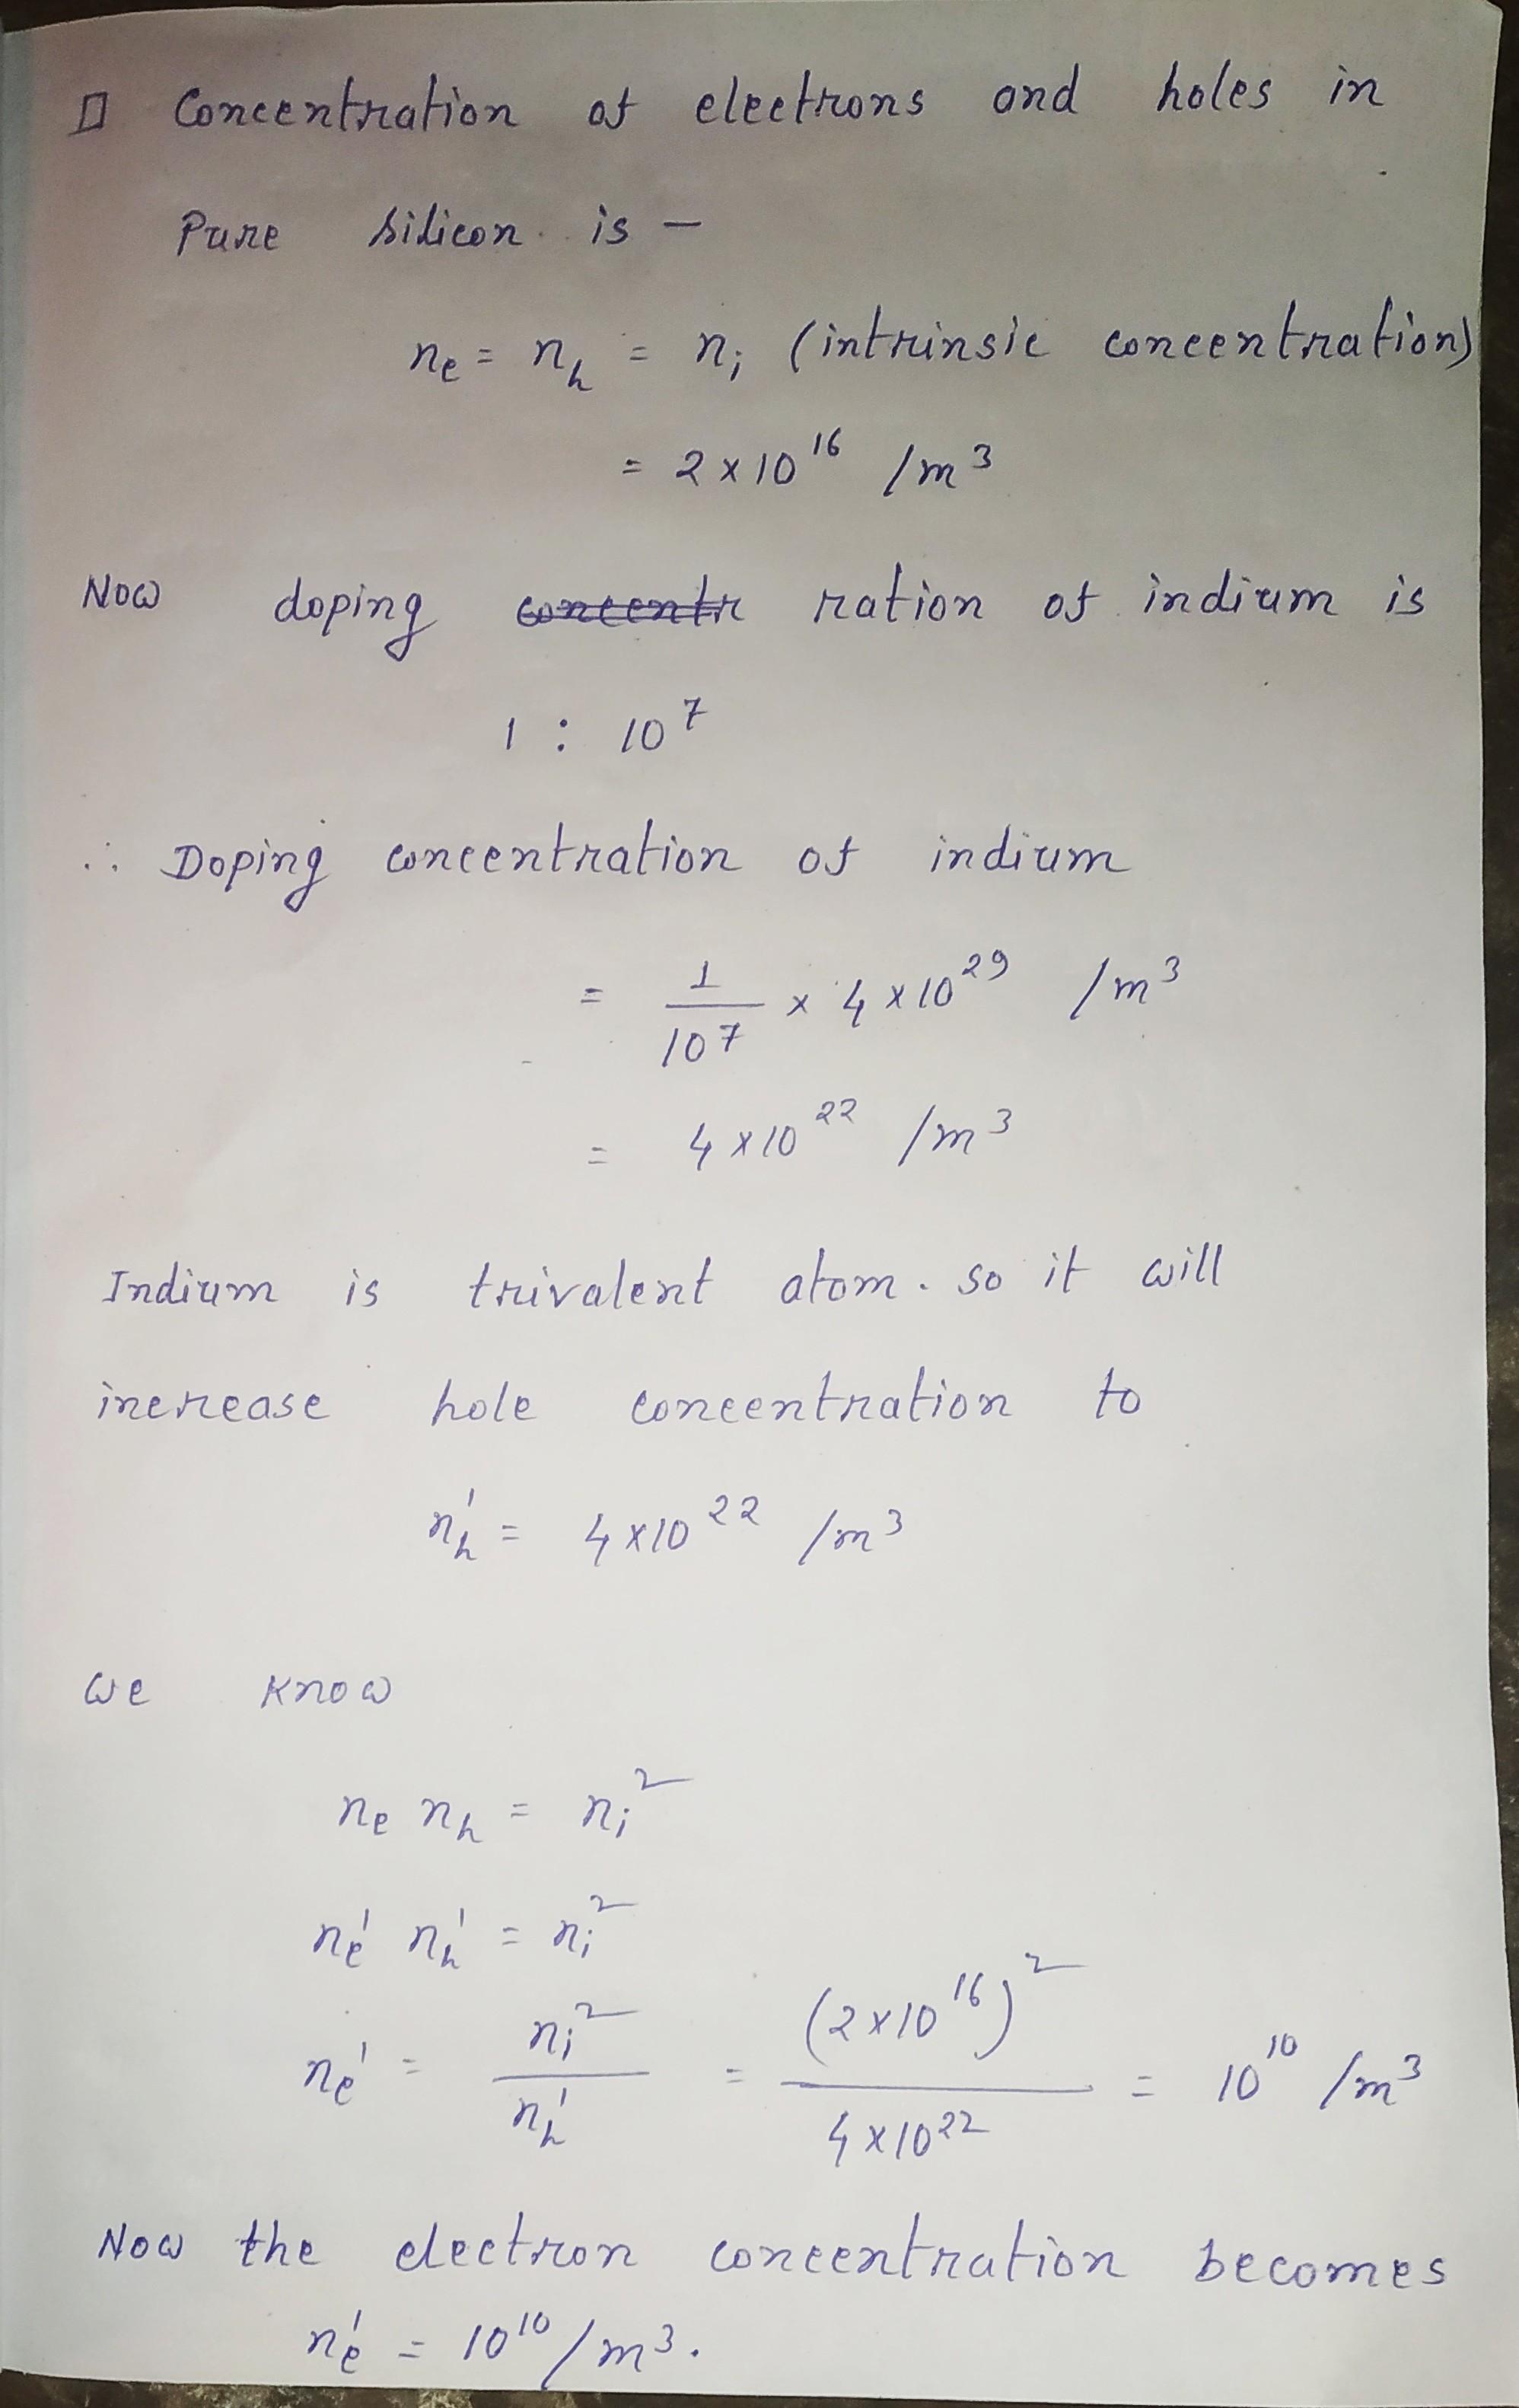 □ Concentration of electrons and holes in
Pure silicon is –
nₑ = nₕ = nᵢ (intrinsic concentration)
= 2 × 10¹⁶ /m³
Now doping concentr ration of indium is
1 : 10⁷
∴ Doping concentration of indium
= 1/10⁷ × 4 × 10²⁹ /m³
= 4 × 10²² /m³
Indium is trivalent atom. so it will
increase hole concentration to
nₕ' = 4 × 10²² /m³
We know
nₑ nₕ = nᵢ²
nₑ' nₕ' = nᵢ²
nₑ' = nᵢ²/nₕ' = (2 × 10¹⁶)²/4 × 10²² = 10¹⁰ /m³
Now the electron concentration becomes
nₑ' = 10¹⁰ /m³.